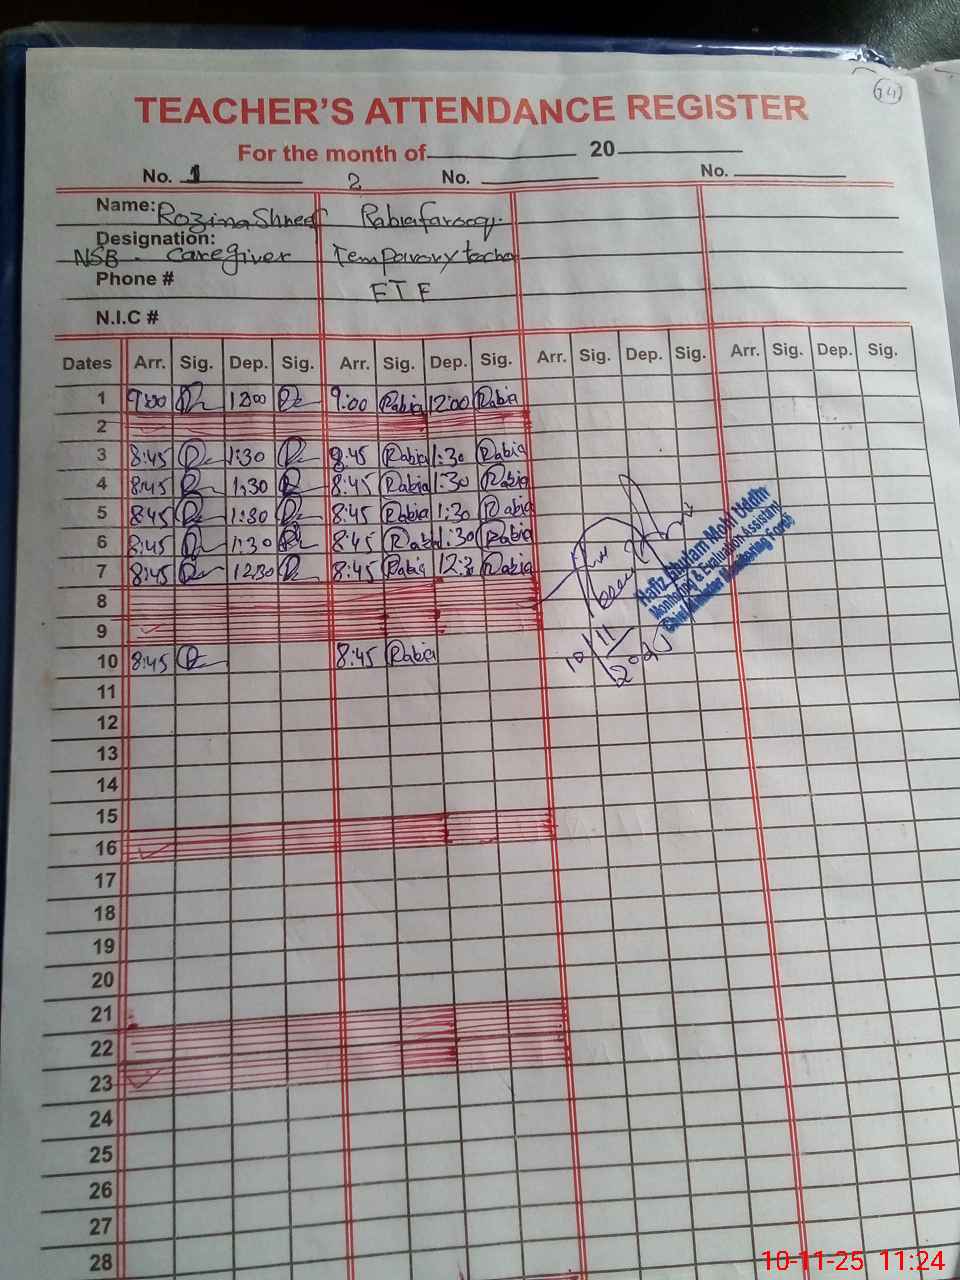 14
TEACHER'S ATTENDANCE REGISTER
For the month of 20
No. 1 2 No. No.
Name: Rozina Rabia farooqi
Designation:
NSB - Caregiver Temporary
Phone # FTF
N.I.C #
Dates Arr. Sig. Dep. Sig. Arr. Sig. Dep. Sig. Arr. Sig. Dep. Sig. Arr. Sig. Dep. Sig.
1 9:00 12:00 9:00 Rabia 12:00 Rabia
2
3 8:45 1:30 8:45 Rabia 1:30 Rabia
4 8:45 1:30 8:45 Rabia 1:30 Rabia
5 8:45 1:30 8:45 Rabia 1:30 Rabia
6 8:45 1:30 8:45 Rabia 1:30 Rabia
7 8:45 12:30 8:45 Rabia 12:3 Rabia
8
9
10 8:45 8:45 Rabia
Hafiz Ghulam Mohi Uddin
Monitoring & Evaluation Assistant
Chief Minister Monitoring Force
10/11/2025
11
12
13
14
15
16
17
18
19
20
21
22
23
24
25
26
27
28
10-11-25 11:24